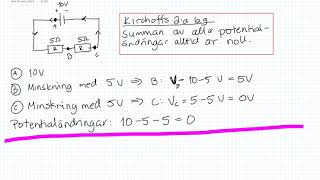 10V
5Ω 5Ω
R R
Kirchoffs 2:a lag
Summan av alla potential-
ändringar alltid är noll.
A 10V
B Minskning med 5V ⇒ B: V_B = 10-5V = 5V
C Minskning med 5V ⇒ C: V_C = 5-5V = 0V
Potentialändringar: 10-5-5=0